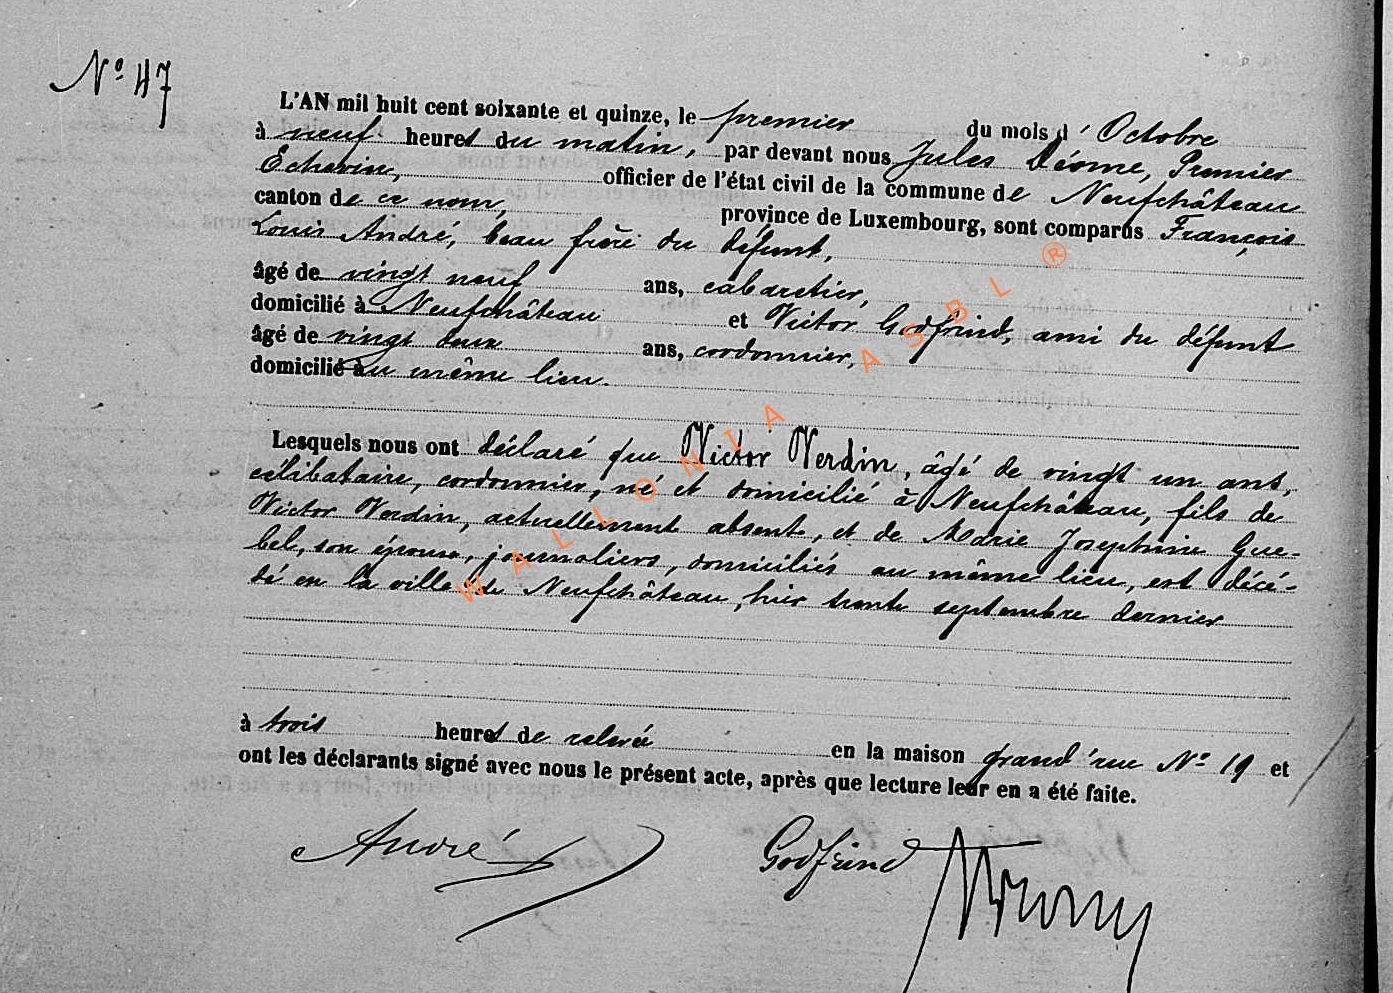 Nº 47
L'AN mil huit cent soixante et quinze, le premier du mois d'Octobre
à neuf heures du matin, par devant nous Jules Premier
Echevin, officier de l'état civil de la commune de Neufchâteau
canton de ce nom, province de Luxembourg, sont comparus François
Louis André, beau frère du défunt,
âgé de vingt neuf ans, cabaretier,
domicilié à Neufchâteau et Victor Godfrind, ami du défunt
âgé de vingt deux ans, cordonnier,
domicilié au même lieu.
Lesquels nous ont déclaré que Victor Verdin, âgé de vingt un ans,
célibataire, cordonnier, né et domicilié à Neufchâteau, fils de
Victor Verdin, actuellement absent, et de Marie Josephine Gue-
bel, son épouse, journaliers, domiciliés au même lieu, est décé-
dé en la ville de Neufchâteau, hier trente septembre dernier
à trois heures de relevée en la maison grand'rue Nº 19 et
ont les déclarants signé avec nous le présent acte, après que lecture leur en a été faite.
André Godfrind
WALLONIA ASBL ®